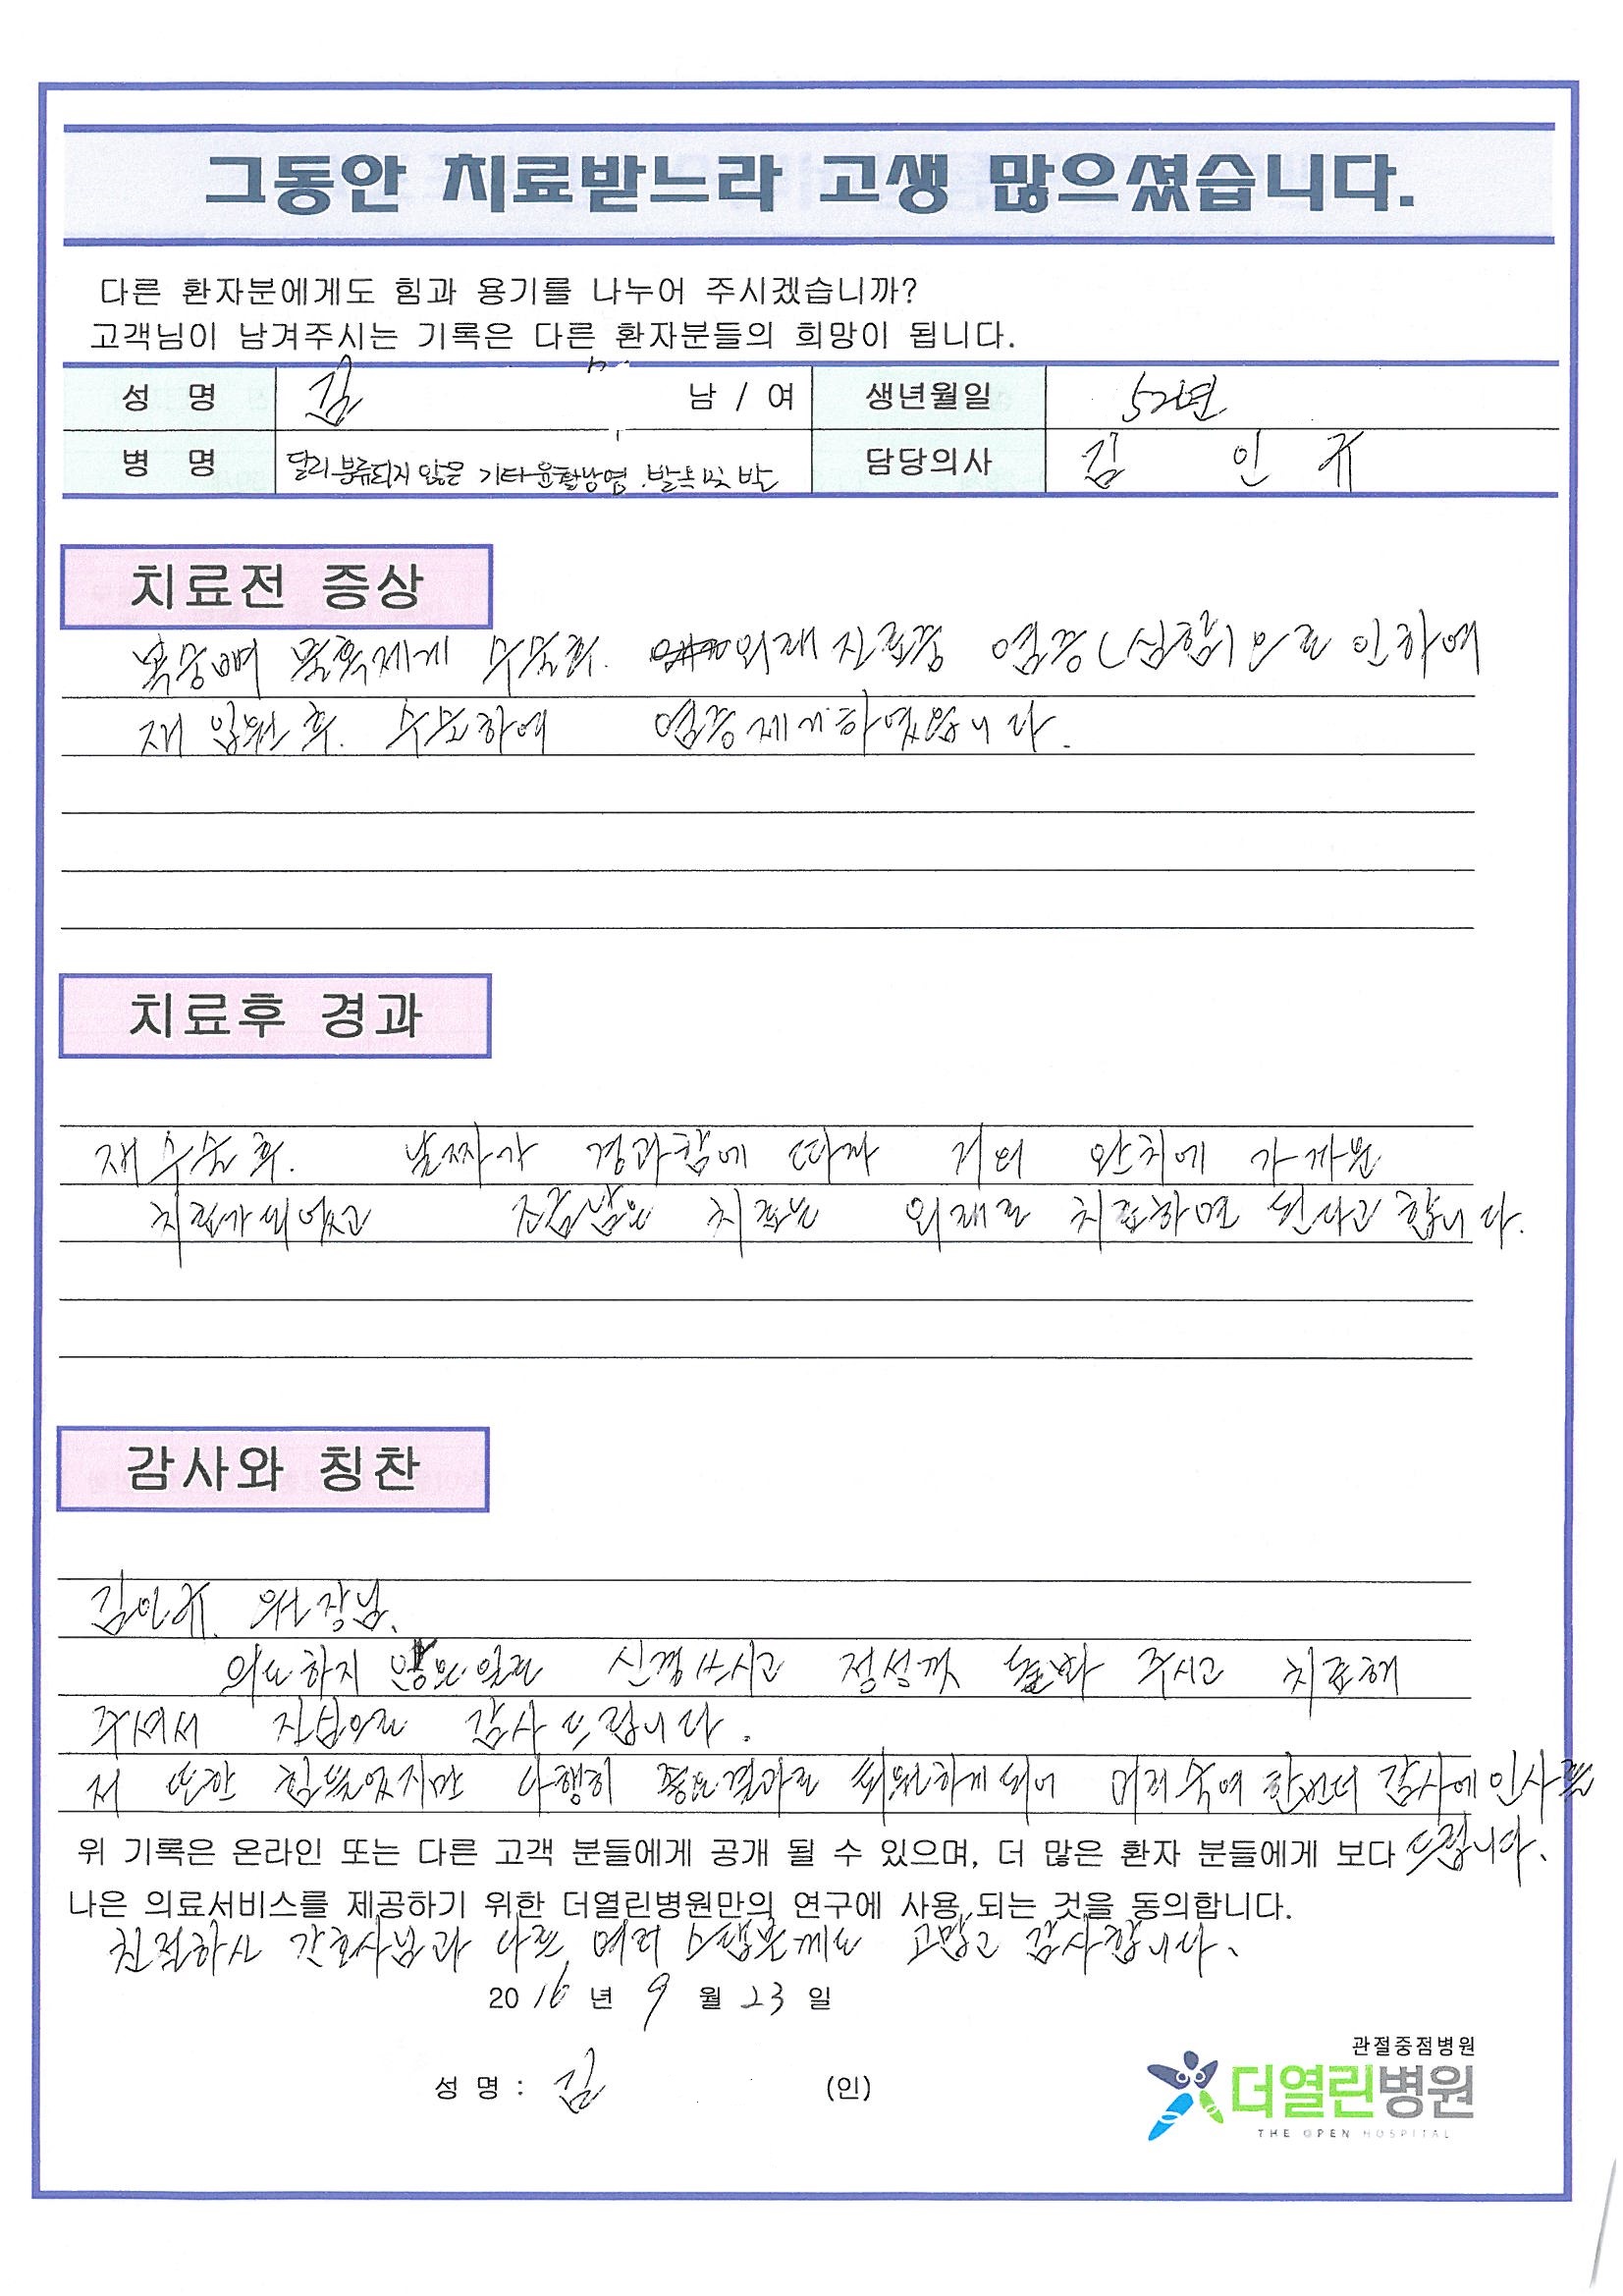 그동안 치료받느라 고생 많으셨습니다.
다른 환자분에게도 힘과 용기를 나누어 주시겠습니까?
고객님이 남겨주시는 기록은 다른 환자분들의 희망이 됩니다.
성 명 김 남 / 여 생년월일 52년
병 명 달리 분류되지 않은 기타 윤활낭염. 발목 및 발 담당의사 김 인 규
치료전 증상
복숭뼈 물혹제게 수술후. 외래 진료중 염증(심함)으로 인하여
재 입원 후. 수술하여 염증제게하였읍니다.
치료후 경과
재수술 후. 날짜가 경과함에 따라 거의 완치에 가까운
치료가 되었고 조금남은 치료는 외래로 치료하면 된다고 합니다.
감사와 칭찬
김인규. 원장님.
의도하지 않은일로 신경쓰시고 정성껏 돌봐 주시고 치료해
주셔서 진심으로 감사 드립니다.
저 또한 힘들었지만 다행히 좋은결과로 퇴원하게되어 머리숙여 한번더 감사에인사를
위 기록은 온라인 또는 다른 고객 분들에게 공개 될 수 있으며, 더 많은 환자 분들에게 보다 드립니다.
나은 의료서비스를 제공하기 위한 더열린병원만의 연구에 사용 되는 것을 동의합니다.
친절하신 간호사님과 다른 여러 스탭분께도 고맙고 감사합니다.
2016년 9월 23일
성 명 : 김 (인)
관절중점병원
더열린병원
THE OPEN HOSPITAL